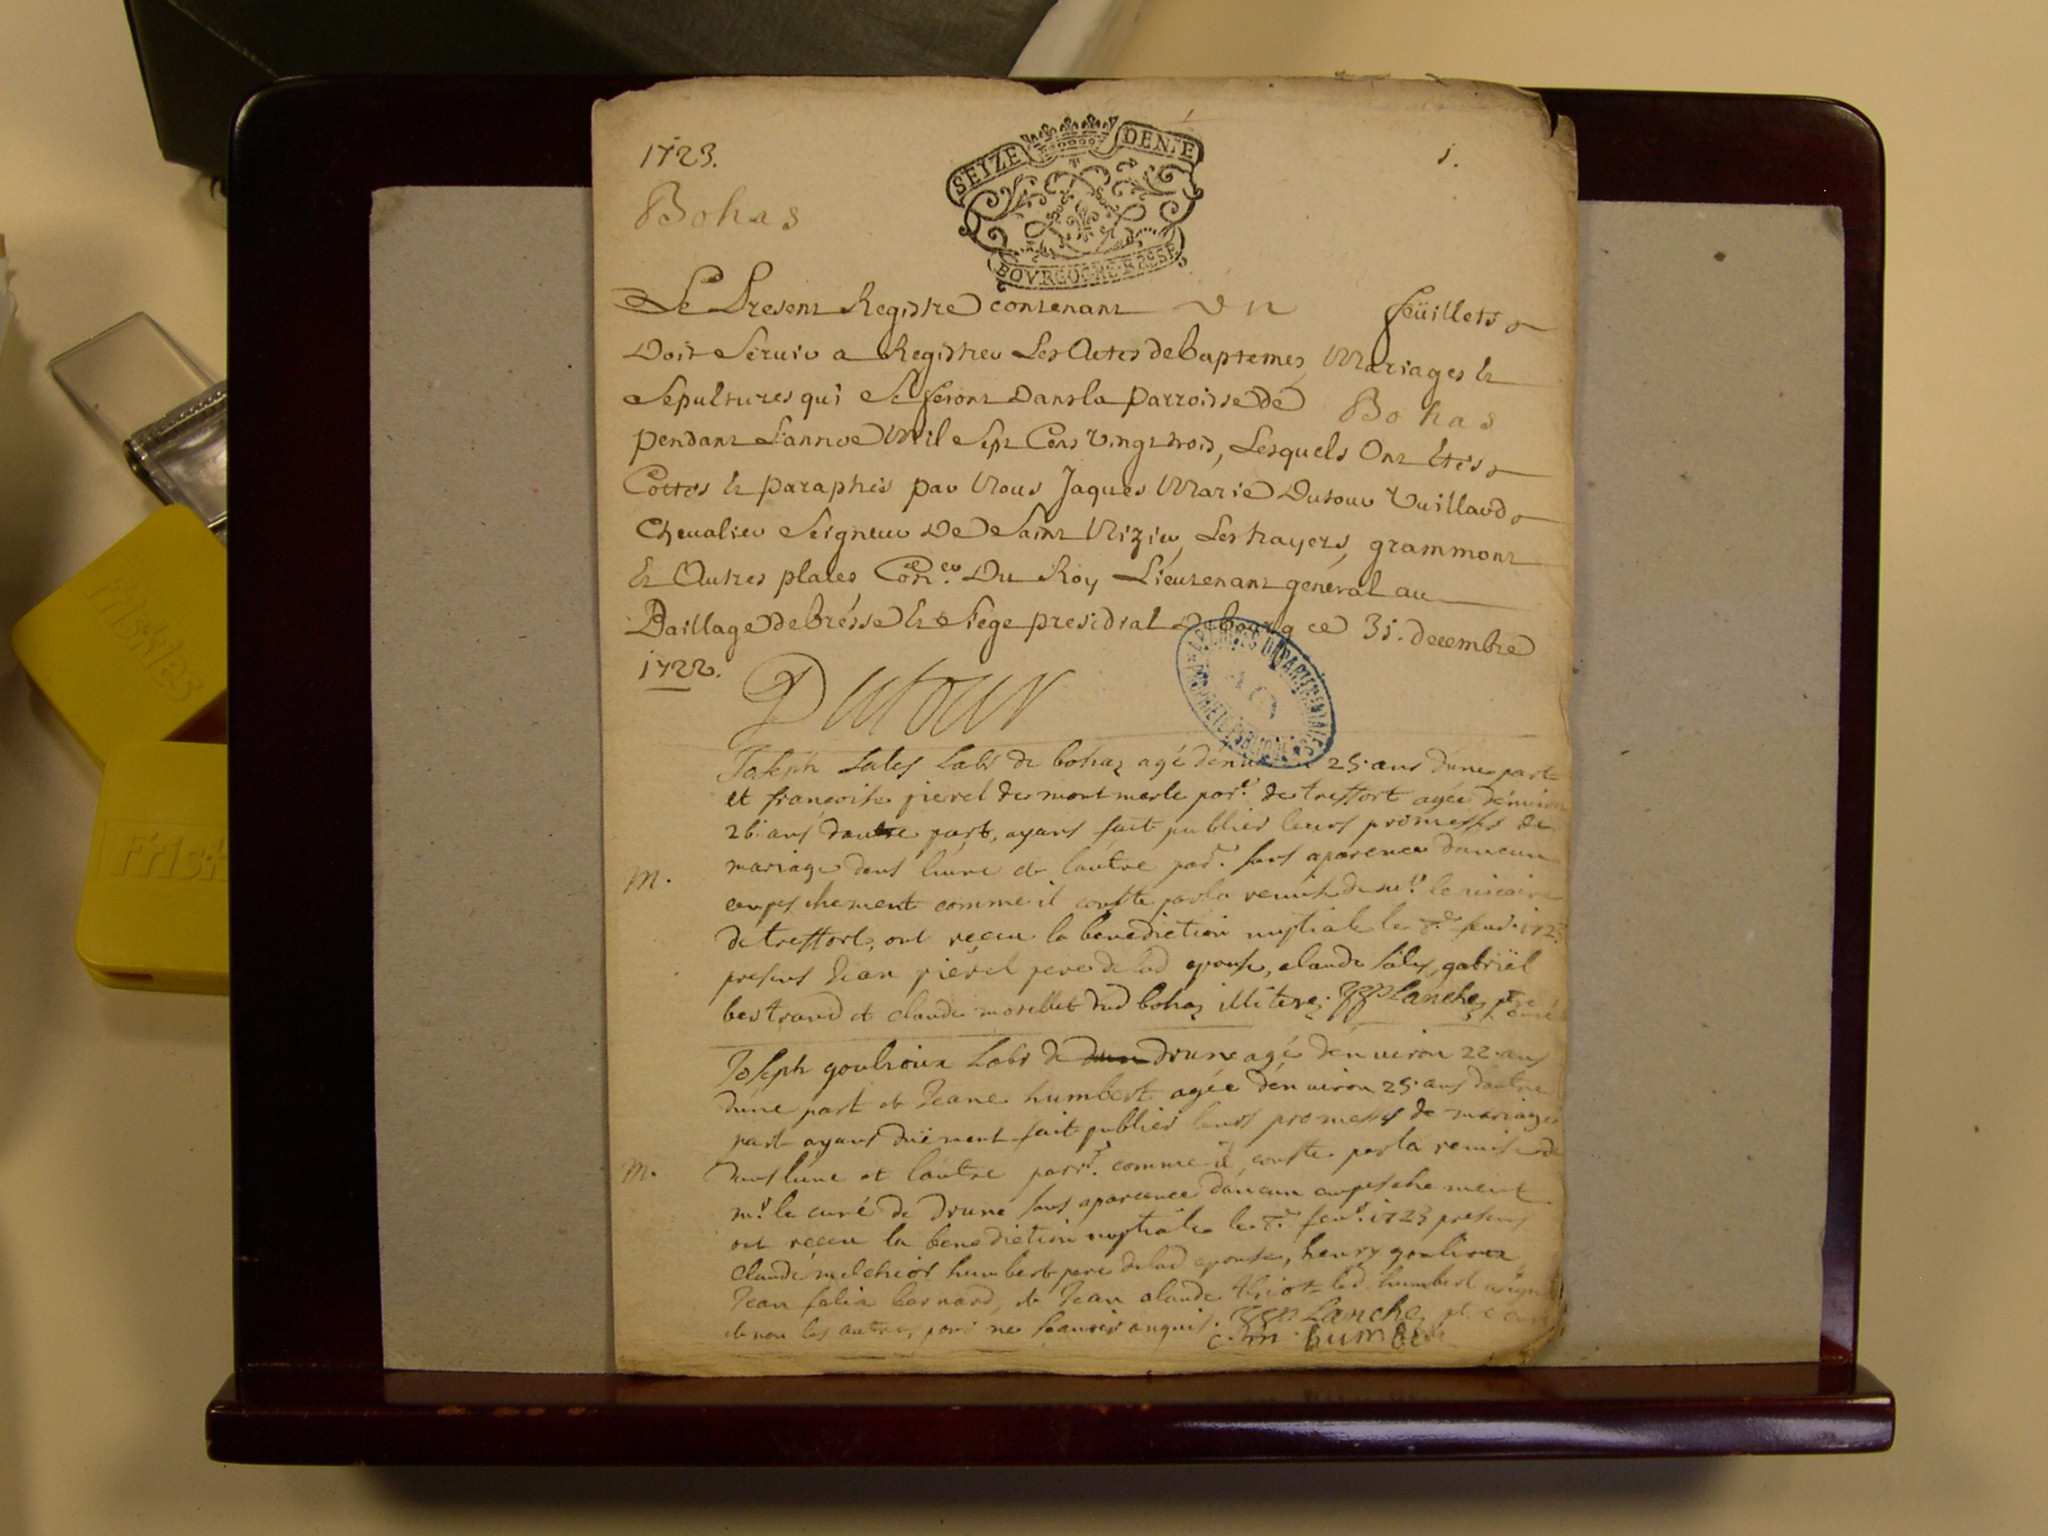 1723.
1.
SEIZE DEN.E
Bohas
BOVRGOGNE BRESSE
Le Present Registre contenant un feüillets
Doit Servir a Registrer Les Actes de baptemes, Mariages et
Sepultures qui Se feront Dans la parroisse de Bohas
pendant L'année Mil Sept Cens vingt trois, Lesquels Ont Etés
Cottés et paraphés par Nous Jaques Marie Dutour Vuillard
Chevalier Seigneur De Saint Nizier, Les hayers, grammont
Et Autres places Con.er Du Roy Lieutenant général au
Baillage de bresse et Siege presidial de bourg ce 31. decembre
1722.
Dutour
ARCHIVES DEPARTEMENTALES
PROPRIETE PUBLIQUE
Joseph Sales Labr de bohaz agé d'env 25 ans d'une part
et françoise pierel de mont merle parr. de treffort agée d'environ
26 ans d'autre part, ayans fait publier leurs promesses de
mariage dans l'une et l'autre par. sans aparence d'aucun
M.
empeschement comme il conste par la remise de mr. le vicaire
de treffort, ont reçeu la benediction nuptiale le fevr. 1723
presens Jean pierel pere de lad epouse, claude sales, gabriël
bertrand et claude morellet dud bohaz illiterez. Planche, ptre curé
Joseph goulioux Labr de drune agé d'environ 22 ans
d'une part et Jeane humbert agée d'environ 25 ans d'autre
part ayans düement fait publier leurs promesses de mariage
dans l'une et l'autre parr. comme il conste par la remise de
M.
mr. le curé de drune sans aparence d'aucun empeschement
ont reçeu la benediction nuptiale le fevr. 1723 presens
claude melchior humbert pere de lad epouse, henry goulioux
Jean felix bernard, et Jean claude led. humbert a signé
et non les autres pour ne sçavoir enquis. Planche, pt. curé
c. m. humbert
Friskies
Frisk